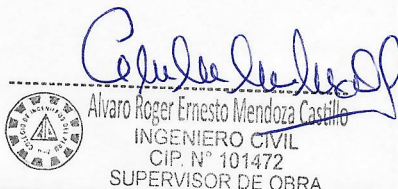 Alvaro Roger Ernesto Mendoza Castillo
INGENIERO CIVIL
CIP. N° 101472
SUPERVISOR DE OBRA